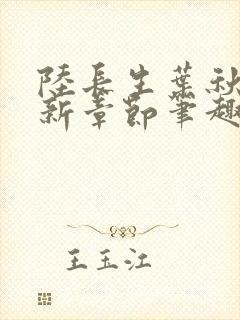 陸長生葉秋
新章節筆趣
王玉江